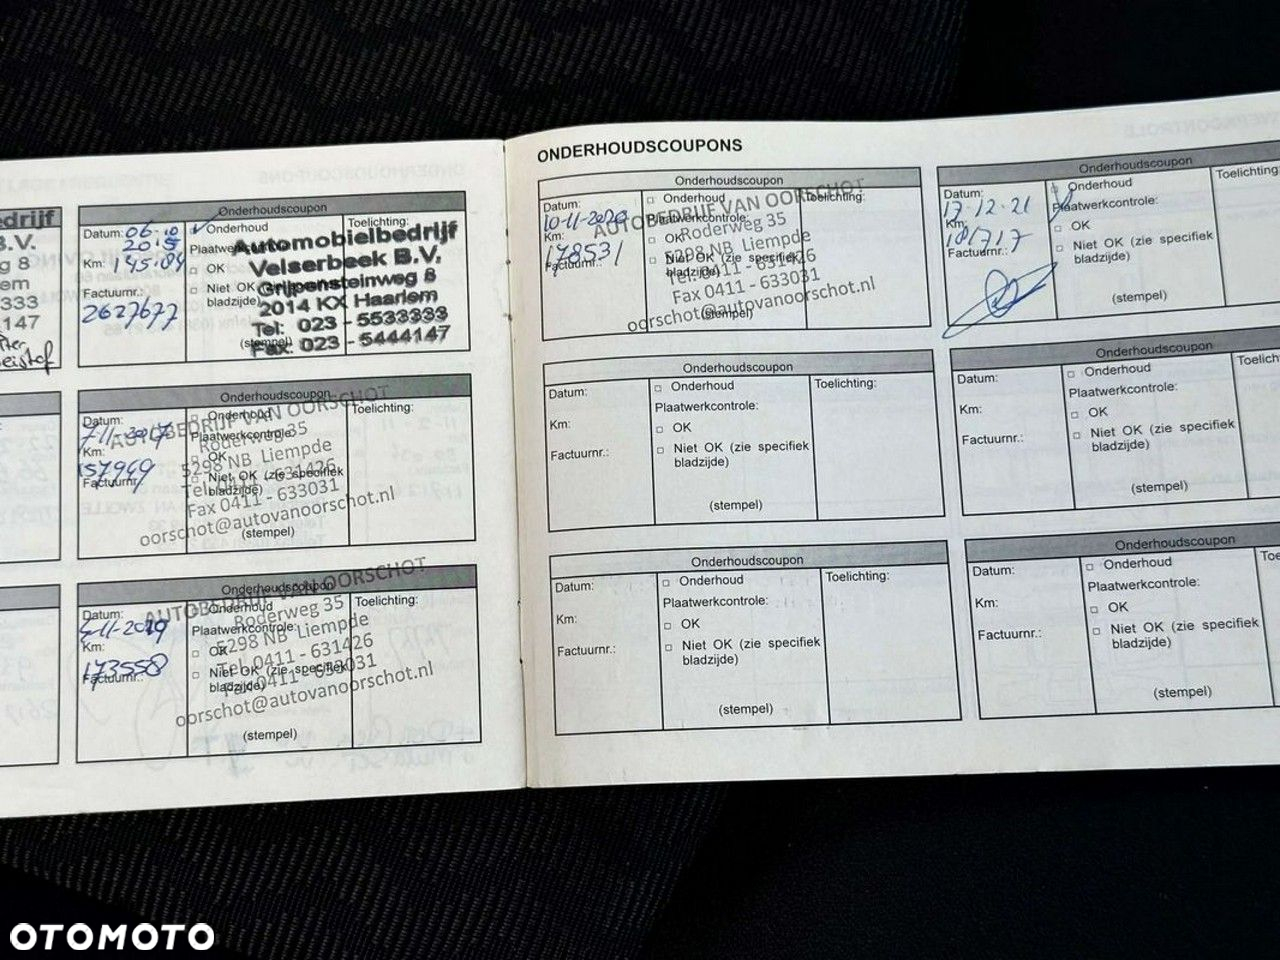 ONDERHOUDSCOUPONS
edrijf
B.V.
g 8
em
333
147
Onderhoudscoupon
Datum: 06-10
2015
Onderhoud
Toelichting:
Km:
OK
Niet OK
bladzijde)
Factuurnr.:
2627677
(stempel)
Automobielbedrijf
Velserbeek B.V.
Grijpensteinweg 8
2014 KX Haarlem
Tel: 023 - 5533333
Fax: 023 - 5444147
Onderhoudscoupon
Datum:
7-11-2017
Km:
157949
Factuurnr.:
Onderhoud
Plaatwerkcontrole:
OK
Niet OK (zie specifiek
bladzijde)
(stempel)
Toelichting:
AUTOBEDRIJF VAN OORSCHOT
Roderweg 35
5298 NB Liempde
Tel. 0411 - 631426
Fax 0411 - 633031
oorschot@autovanoorschot.nl
Onderhoudscoupon
Datum:
Km:
173558
Factuurnr.:
Onderhoud
Plaatwerkcontrole:
OK
Niet OK (zie specifiek
bladzijde)
(stempel)
Toelichting:
AUTOBEDRIJF VAN OORSCHOT
Roderweg 35
5298 NB Liempde
Tel. 0411 - 631426
Fax 0411 - 633031
oorschot@autovanoorschot.nl
Onderhoudscoupon
Datum:
10-11-2020
Km:
178531
Factuurnr.:
Onderhoud
Plaatwerkcontrole:
OK
Niet OK (zie specifiek
bladzijde)
(stempel)
Toelichting:
AUTOBEDRIJF VAN OORSCHOT
Roderweg 35
5298 NB Liempde
Tel. 0411 - 631426
Fax 0411 - 633031
oorschot@autovanoorschot.nl
Onderhoudscoupon
Datum:
17-12-21
Km:
181717
Factuurnr.:
Onderhoud
Plaatwerkcontrole:
OK
Niet OK (zie specifiek
bladzijde)
(stempel)
Toelichting:
Onderhoudscoupon
Datum:
Km:
Factuurnr.:
Onderhoud
Plaatwerkcontrole:
OK
Niet OK (zie specifiek
bladzijde)
(stempel)
Toelichting:
Onderhoudscoupon
Datum:
Km:
Factuurnr.:
Onderhoud
Plaatwerkcontrole:
OK
Niet OK (zie specifiek
bladzijde)
(stempel)
Toelich
Onderhoudscoupon
Datum:
Km:
Factuurnr.:
Onderhoud
Plaatwerkcontrole:
OK
Niet OK (zie specifiek
bladzijde)
(stempel)
Toelichting:
Onderhoudscoupon
Datum:
Km:
Factuurnr.:
Onderhoud
Plaatwerkcontrole:
OK
Niet OK (zie specifiek
bladzijde)
(stempel)
Toe
OTOMOTO